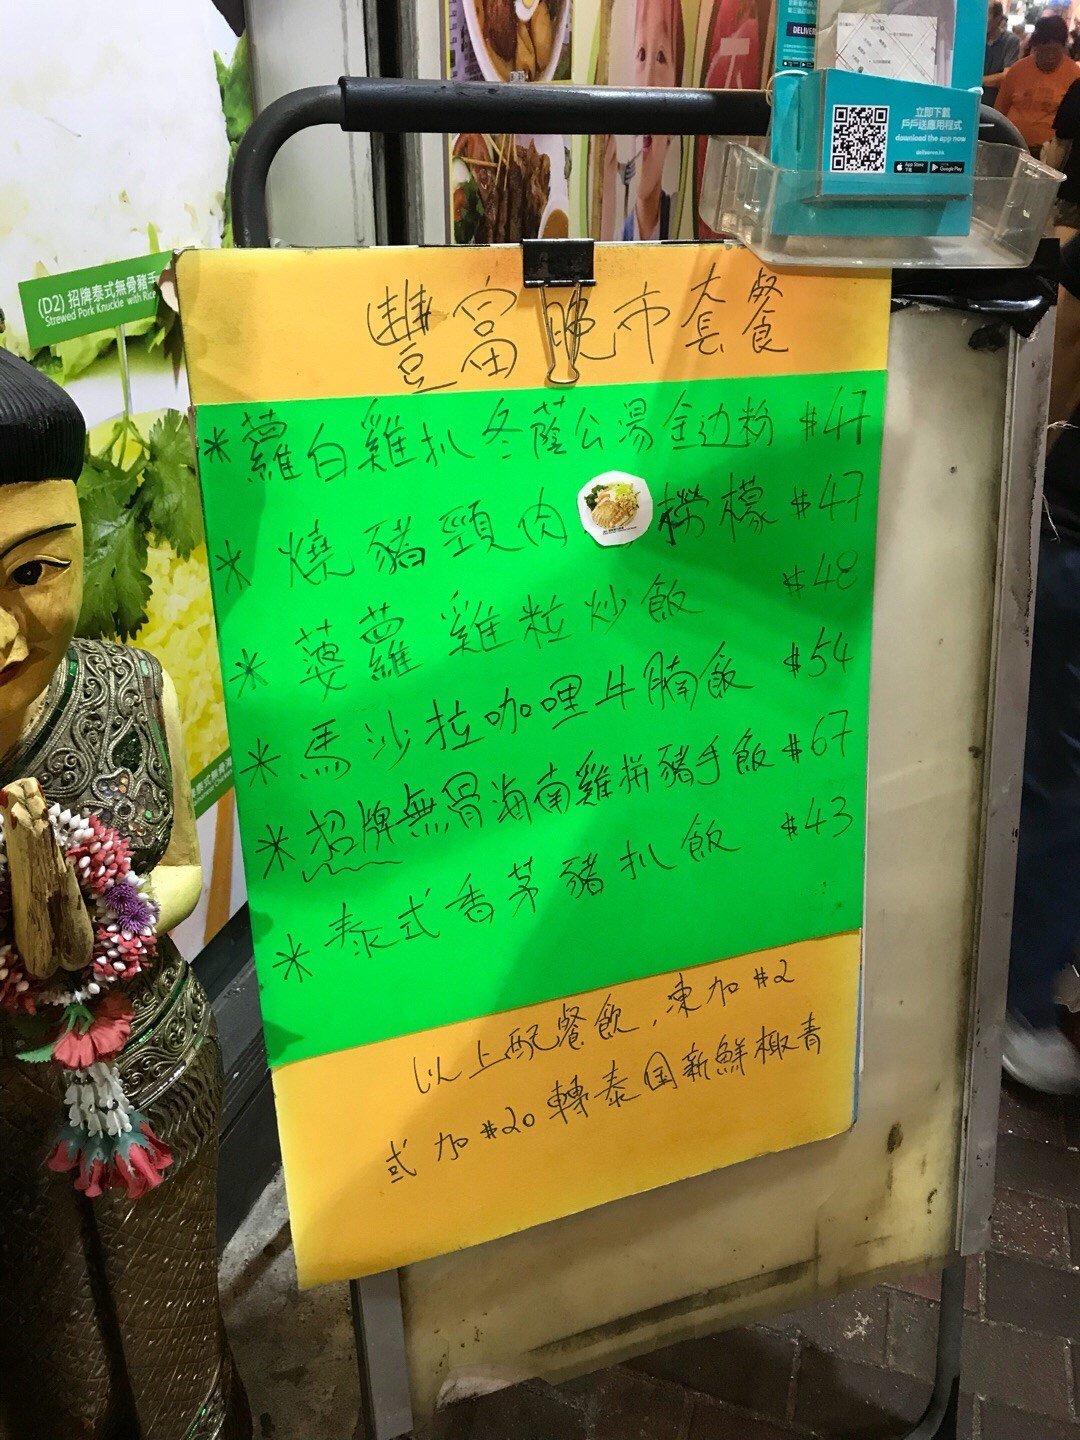 DELIVER
立即下載
戶戶送應用程式
download the app now
deliveroo.hk
App Store
Google Play
(D2) 招牌泰式無骨豬手
Strewed Pork Knuckle with Rice
豐富晚市套餐
*蘿白雞扒冬蔭公湯金边粉 $47
*燒豬頸肉撈檬 $47
*菠蘿雞粒炒飯 $48
*馬沙拉咖哩牛腩飯 $54
*招牌無骨海南雞拼豬手飯 $67
*泰式香茅豬扒飯 $43
以上配餐飲,凍加 $2
或加 $20 轉泰国新鮮椰青